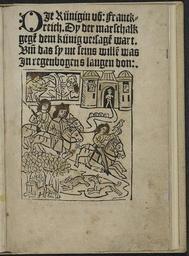 Die Künigin võ Franck-
reich. Dy der marschalk
gegẽ dem künig versagt wart.
Vn̄ das sy mt seins willẽ was
In regenbogens langen don:.